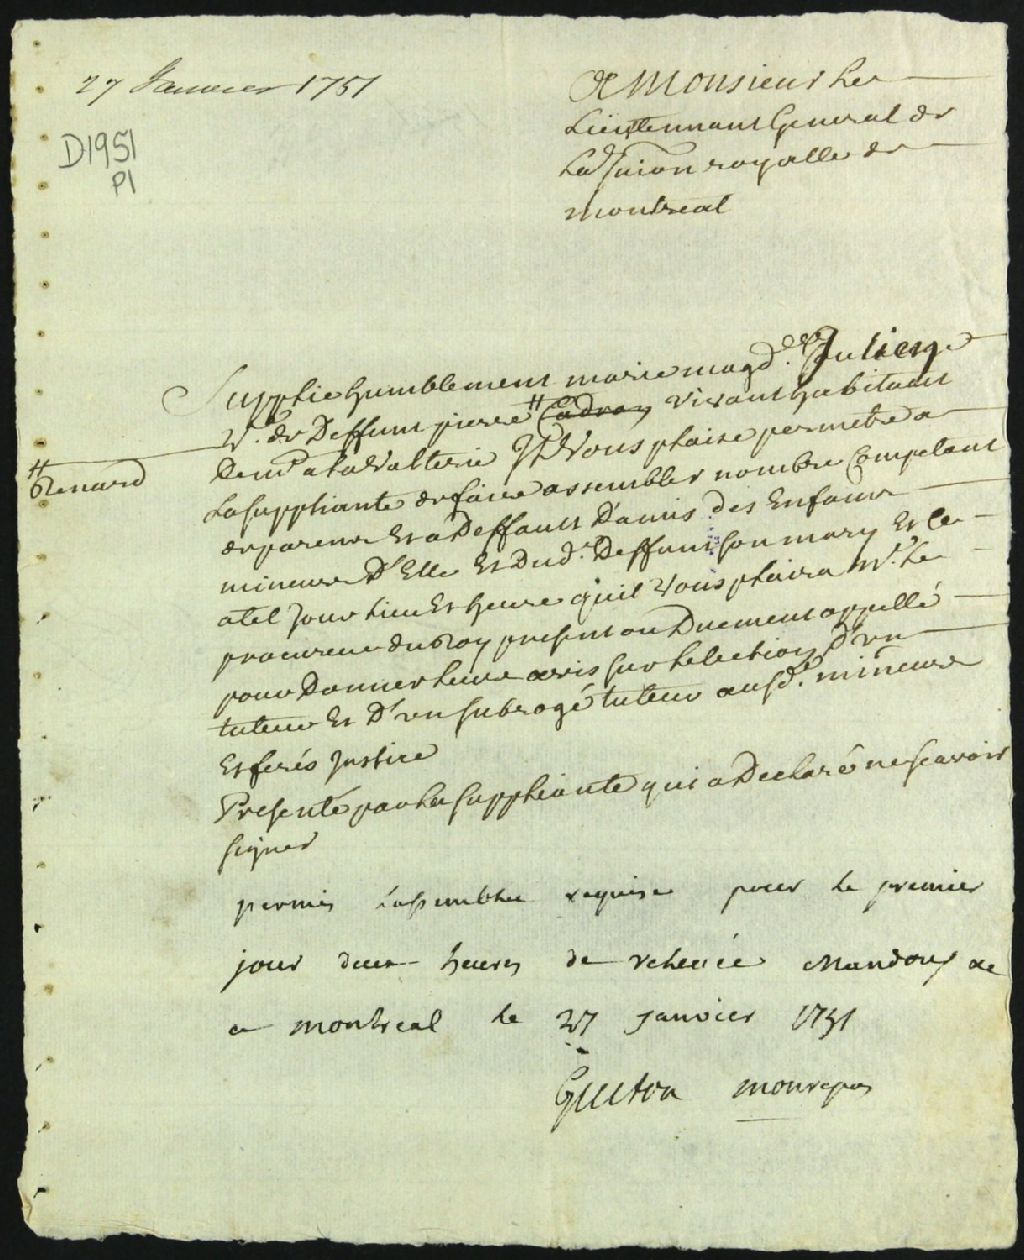 27 Janvier 1751
D1951
P1
A Monsieur Le
Lieutennant General de
La Jurion royalle de
Montreal
Supplie humblement marie magd.ne Julien
V.e de Deffunt pierre # Cadron vivant habitant
# Renard
Dem.t a la Valterie Il Vous plaise permetre a
La suppliante de faire assembler nombre Competant
de parens Et a Deffault D'amis des Enfans
mineurs D'Elle Et Dud. Deffunt son mary Et Ce
a tel Jour Lieu Et heure qu'il Vous plaira Mr. Le
procureur du Roy present ou Duement appellé
pour Donner Leurs avis sur L'election D'un
tuteur Et D'un subrogé tuteur ausd. mineurs
Et ferés Justice
Presenté par La suppliante qui a Declaré ne scavoir
signer
permis l'assemblée requise pour le premier
jour deux heures de relevée Mandons &c
a montreal le 27 janvier 1751
Guiton monrepos